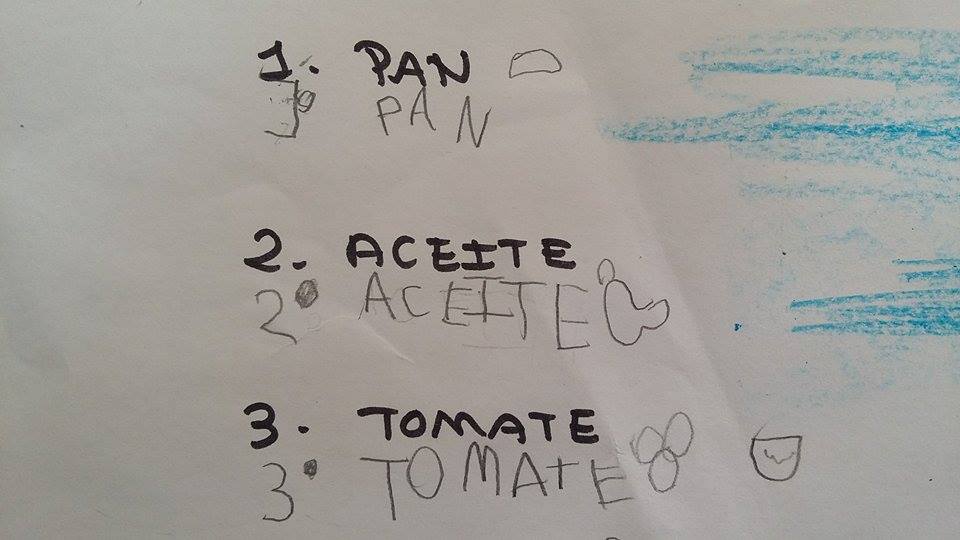 1. PAN
1. PAN
2. ACEITE
2. ACEITE
3. TOMATE
3. TOMATE